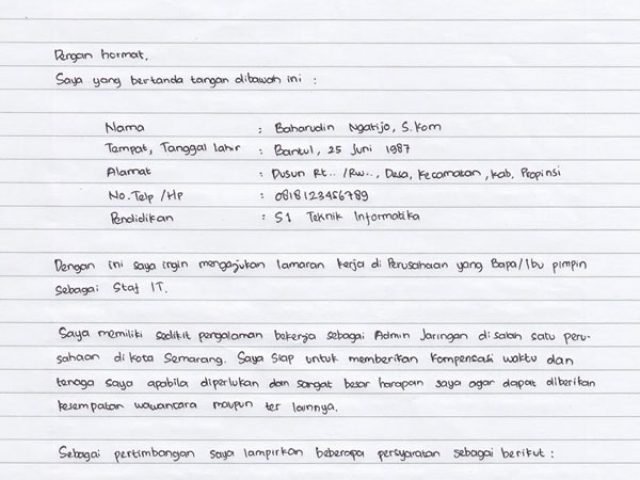 Dengan hormat,
Saya yang bertanda tangan dibawah ini :
Nama : Baharudin Ngatijo, S.Kom
Tempat, Tanggal lahir : Bantul, 25 Juni 1987
Alamat : Dusun Rt.. /Rw.., Desa, Kecamatan, Kab. Propinsi
No. Telp /Hp : 0818123456789
Pendidikan : S1 Teknik Informatika
Dengan ini saya ingin mengajukan lamaran kerja di Perusahaan yang Bapa/Ibu pimpin
sebagai Staf IT.
Saya memiliki sedikit pengalaman bekerja sebagai Admin Jaringan di salah satu peru-
sahaan di kota Semarang. Saya siap untuk memberikan kompensasi waktu dan
tenaga saya apabila diperlukan dan sangat besar harapan saya agar dapat diberikan
kesempatan wawancara maupun tes lainnya.
Sebagai pertimbangan saya lampirkan beberapa persyaratan sebagai berikut :